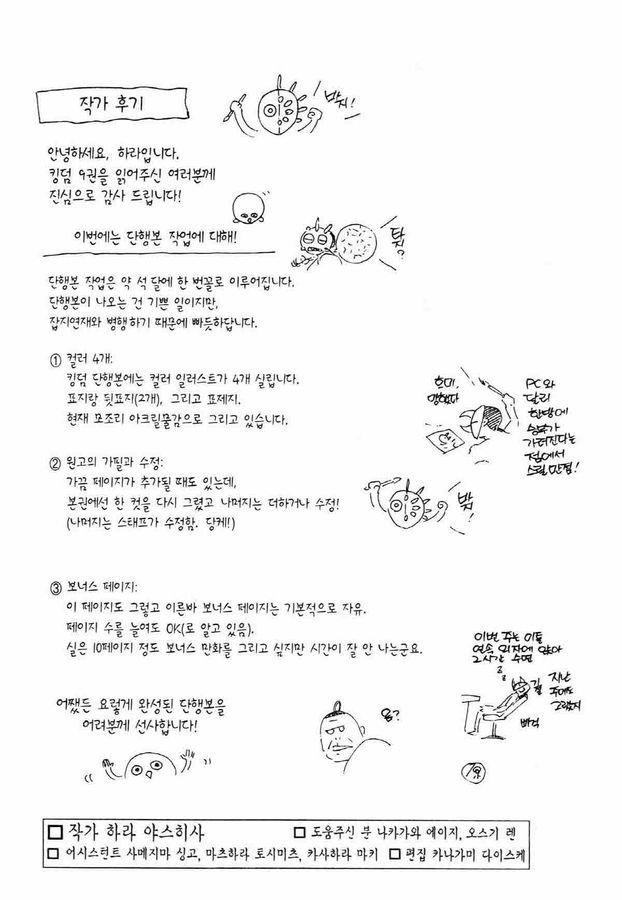 작가 후기
빠지!
안녕하세요, 하라입니다.
킹덤 9권을 읽어주신 여러분께
진심으로 감사 드립니다!
이번에는 단행본 작업에 대해!
단행본 작업은 약 석 달에 한 번꼴로 이루어집니다.
단행본이 나오는 건 기쁜 일이지만,
잡지연재와 병행하기 때문에 빠듯하답니다.
① 컬러 4개:
킹덤 단행본에는 컬러 일러스트가 4개 실립니다.
표지랑 뒷표지(2개), 그리고 표제지.
현재 모조리 아크릴물감으로 그리고 있습니다.
PC와
달리
한방에
승부가
가려진다는
점에서
스릴 만점!
② 원고의 가필과 수정:
가끔 페이지가 추가될 때도 있는데,
본권에선 한 컷을 다시 그렸고 나머지는 더하거나 수정!
(나머지는 스태프가 수정함. 당케!)
③ 보너스 페이지:
이 페이지도 그렇고 이른바 보너스 페이지는 기본적으로 자유.
페이지 수를 늘여도 OK(로 알고 있음).
실은 10페이지 정도 보너스 만화를 그리고 싶지만 시간이 잘 안 나는군요.
이번 주는 이틀
연속 의자에 앉아
2시간 수면
지난
주에도
그랬지
어쨌든 요렇게 완성된 단행본을
여러분께 선사합니다!
응?
작가 하라 야스히사
도움주신 분 나카가와 에이지, 오스기 렌
어시스턴트 사메지마 싱고, 마츠하라 토시미츠, 카사하라 마키
편집 카나가미 다이스케